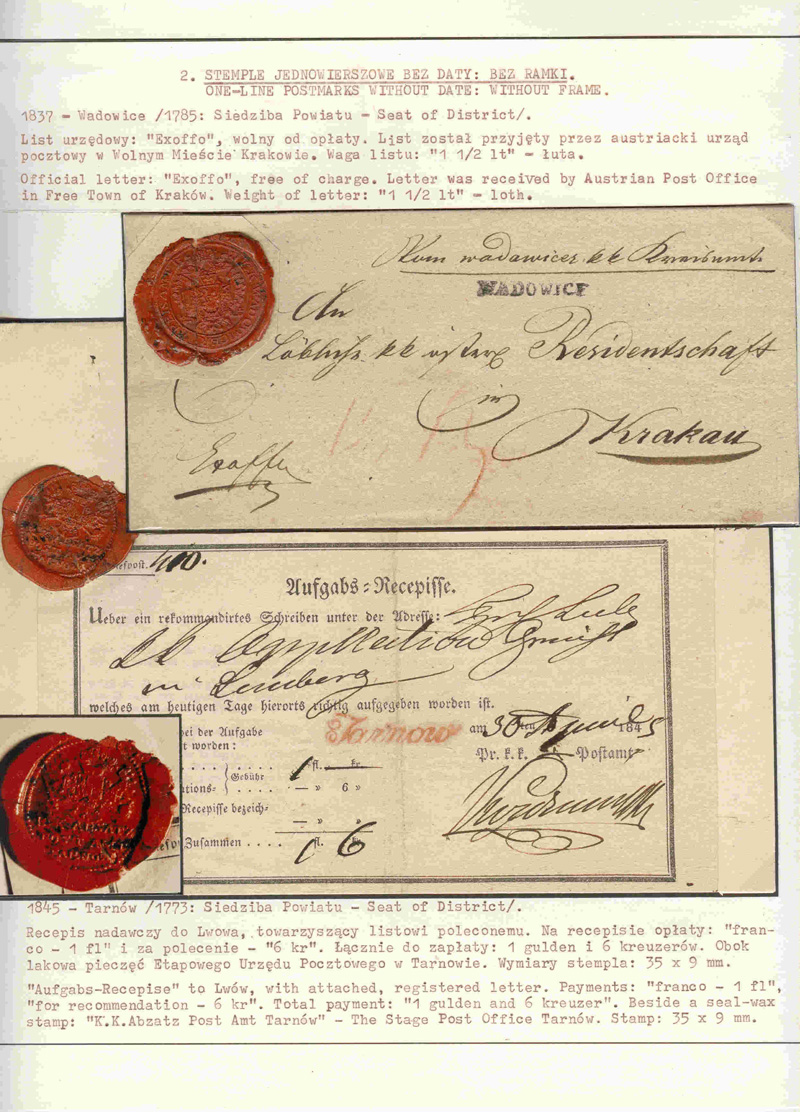 2. STEMPLE JEDNOWIERSZOWE BEZ DATY: BEZ RAMKI.
ONE-LINE POSTMARKS WITHOUT DATE: WITHOUT FRAME.
1837 - Wadowice /1785: Siedziba Powiatu - Seat of District/.
List urzędowy: "Exoffo", wolny od opłaty. List został przyjęty przez austriacki urząd
pocztowy w Wolnym Mieście Krakowie. Waga listu: "1 1/2 lt" - łuta.
Official letter: "Exoffo", free of charge. Letter was received by Austrian Post Office
in Free Town of Kraków. Weight of letter: "1 1/2 lt" - loth.
Vom wadowicer kk Kreisamt
WADOWICE
An
Löbliche kk österr Residentschaft
in
Krakau
Exoffo
Aufgabs-Recepisse.
Ueber ein rekommandirtes Schreiben unter der Adresse:
kk Appellation Gericht
in Lemberg
welches am heutigen Tage hierorts richtig aufgegeben worden ist.
bei der Aufgabe
Tarnow
am 30 184 5
t worden:
Pr. k. k. Postamt
1 fl. kr.
Gebühr
ations-
— » 6 »
Recepisse bezeich-
— » »
Zusammen . . . . 1 fl. 6
1845 - Tarnów /1773: Siedziba Powiatu - Seat of District/.
Recepis nadawczy do Lwowa, towarzyszący listowi poleconemu. Na recepisie opłaty: "fran-
co - 1 fl" i za polecenie - "6 kr". Łącznie do zapłaty: 1 gulden i 6 kreuzerów. Obok
lakowa pieczęć Etapowego Urzędu Pocztowego w Tarnowie. Wymiary stempla: 35 x 9 mm.
"Aufgabs-Recepise" to Lwów, with attached, registered letter. Payments: "franco - 1 fl",
"for recommendation - 6 kr". Total payment: "1 gulden and 6 kreuzer". Beside a seal-wax
stamp: "K.K.Abzatz Post Amt Tarnów" - The Stage Post Office Tarnów. Stamp: 35 x 9 mm.